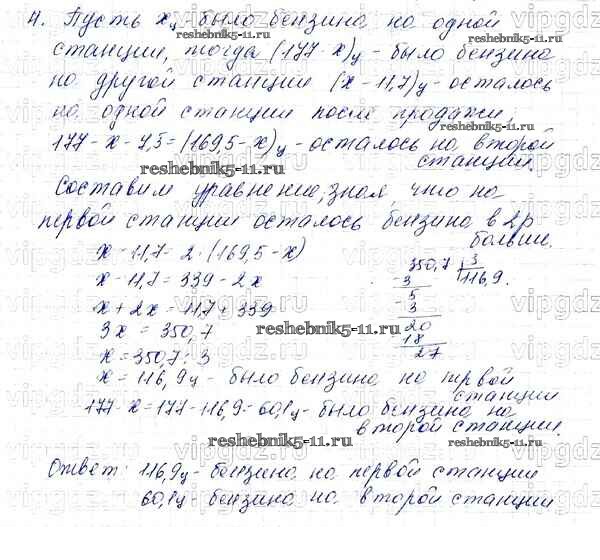 4. Пусть х ц было бензина на одной
станции, тогда (177-х)ц - было бензина
на другой станции (х-11,7)ц - осталось
на одной станции после продажи,
177-х-7,5=(169,5-х)ц - осталось на второй
станции.
reshebnik5-11.ru
Составим уравнение, зная, что на
первой станции осталось бензина в 2 р
больше.
х-11,7=2·(169,5-х)
х-11,7=339-2х
х+2х=11,7+339
3х=350,7
х=350,7:3
х=116,9ц - было бензина на первой
станции
177-х=177-116,9=60,1ц - было бензина на
второй станции.
350,7 3
-3 116,9.
5
-3
20
18
27
reshebnik5-11.ru
Ответ: 116,9ц - бензина на первой станции
60,1ц - бензина на второй станции